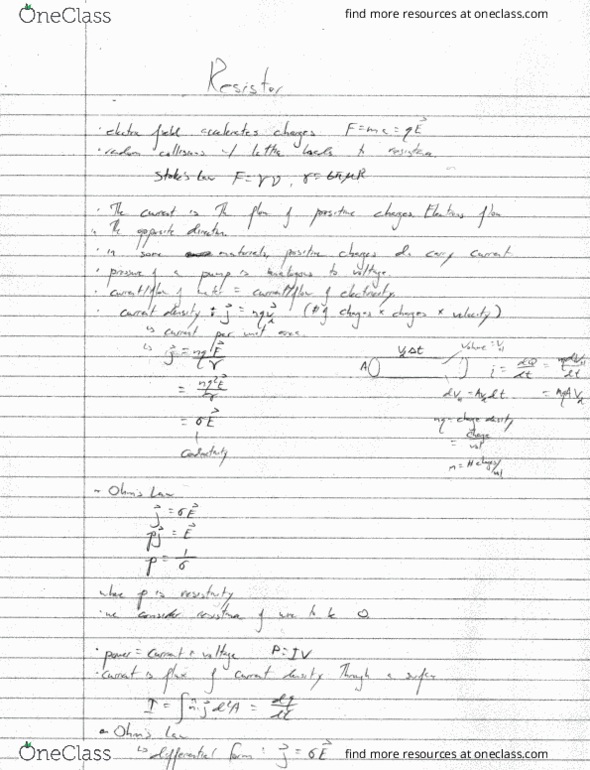 OneClass
find more resources at oneclass.com
Resistor
· electric field accelerates charges F=ma=qE
· random collisions w/ lattice leads to resistance
Stoke's Law F=γv, γ=6πμR
· The current is the flow of positive charges. Electrons flow
the opposite direction
· in some materials, positive charges do carry current
· pressure of a pump is analogous to voltage.
· current/flow of water = current/flow of electricity
· current density : j = nqv (# of charges × charges × velocity)
is current per unit area.
j = nq²E/γ
= nq²E/γ
= σE
conductivity
A
dt
Volume = V
i = dQ/dt
= nqAV
nq = charge density
= charge/vol
n = # charges/vol
- Ohm's Law
j = σE
ρj = E
ρ = 1/σ
where ρ is resistivity
· we consider resistance of wire to be 0.
· power = current × voltage P=IV
· current is flux of current density through a surface
I = ∫ n·j d²A = dq/dt
- Ohm's Law
↳ differential form : j = σE
OneClass
find more resources at oneclass.com